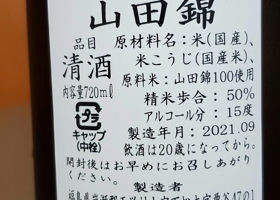 山田錦
品目
清酒
内容量720ml
プラ
キャップ
(中栓)
原材料名:米(国産)、
米こうじ(国産米)、
原料米:山田錦100使用
精米歩合:50%
アルコール分:15度
製造年月:2021.09
飲酒は20歳になってから。
開封後はお早めにお召しあがり
ください。
製造者